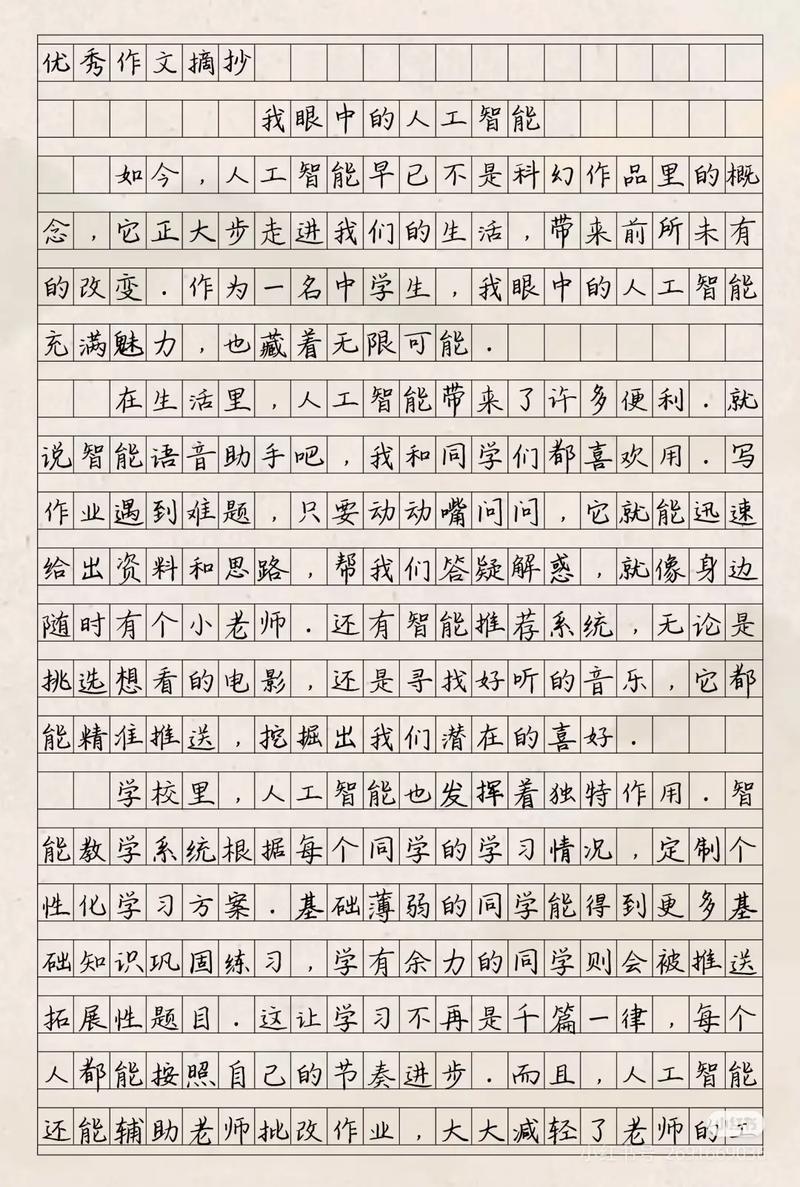 优秀作文摘抄
我眼中的人工智能
如今，人工智能早已不是科幻作品里的概
念，它正大步走进我们的生活，带来前所未有
的改变．作为一名中学生，我眼中的人工智能
充满魅力，也藏着无限可能．
在生活里，人工智能带来了许多便利．就
说智能语音助手吧，我和同学们都喜欢用．写
作业遇到难题，只要动动嘴问问，它就能迅速
给出资料和思路，帮我们答疑解惑，就像身边
随时有个小老师．还有智能推荐系统，无论是
挑选想看的电影，还是寻找好听的音乐，它都
能精准推送，挖掘出我们潜在的喜好．
学校里，人工智能也发挥着独特作用．智
能教学系统根据每个同学的学习情况，定制个
性化学习方案．基础薄弱的同学能得到更多基
础知识巩固练习，学有余力的同学则会被推送
拓展性题目．这让学习不再是千篇一律，每个
人都能按照自己的节奏进步．而且，人工智能
还能辅助老师批改作业，大大减轻了老师的工
小红书
小红书号